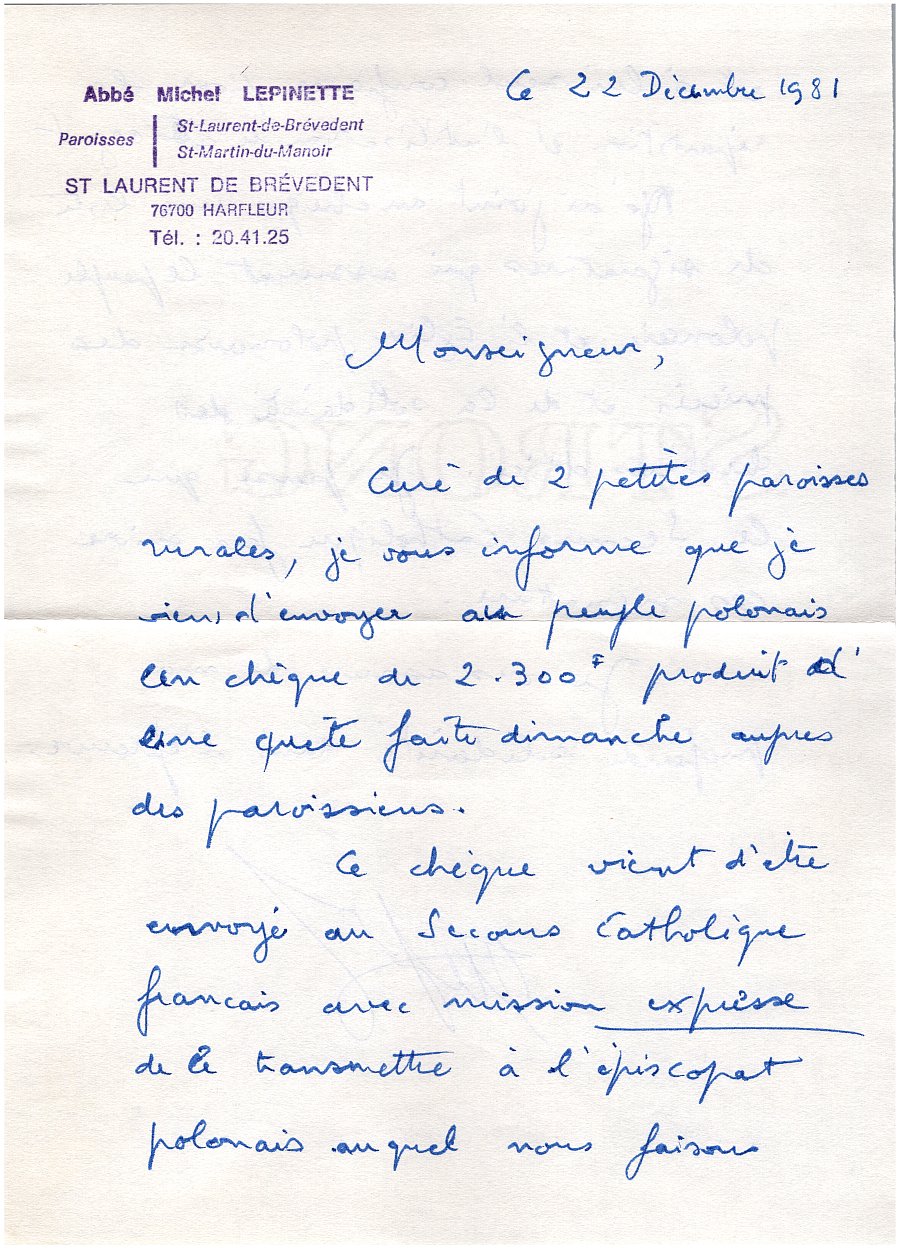 Abbé Michel LEPINETTE
Paroisses
St-Laurent-de-Brévedent
St-Martin-du-Manoir
ST LAURENT DE BRÉVEDENT
76700 HARFLEUR
Tél. : 20.41.25
Ce 22 Décembre 1981
Monseigneur,
Curé de 2 petites paroisses
rurales, je vous informe que je
viens d'envoyer au peuple polonais
un chèque de 2.300F produit d'
une quête faite dimanche auprès
des paroissiens.
Ce chèque vient d'être
envoyé au Secours Catholique
français avec mission expresse
de le transmettre à l'épiscopat
polonais auquel nous faisons